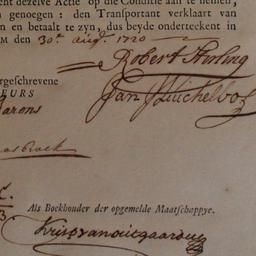 ent dezelve Actie op die Conditie aan te nemen,
n genoegen: den Transportant verklaart van
n en betaalt te zyn, dus beyde onderteekent in
M den 30e aug. 1720
Robert Stirling
rgeschrevene
EURS
Barons
Jan
Als Boekhouder der opgemelde Maatschappye.